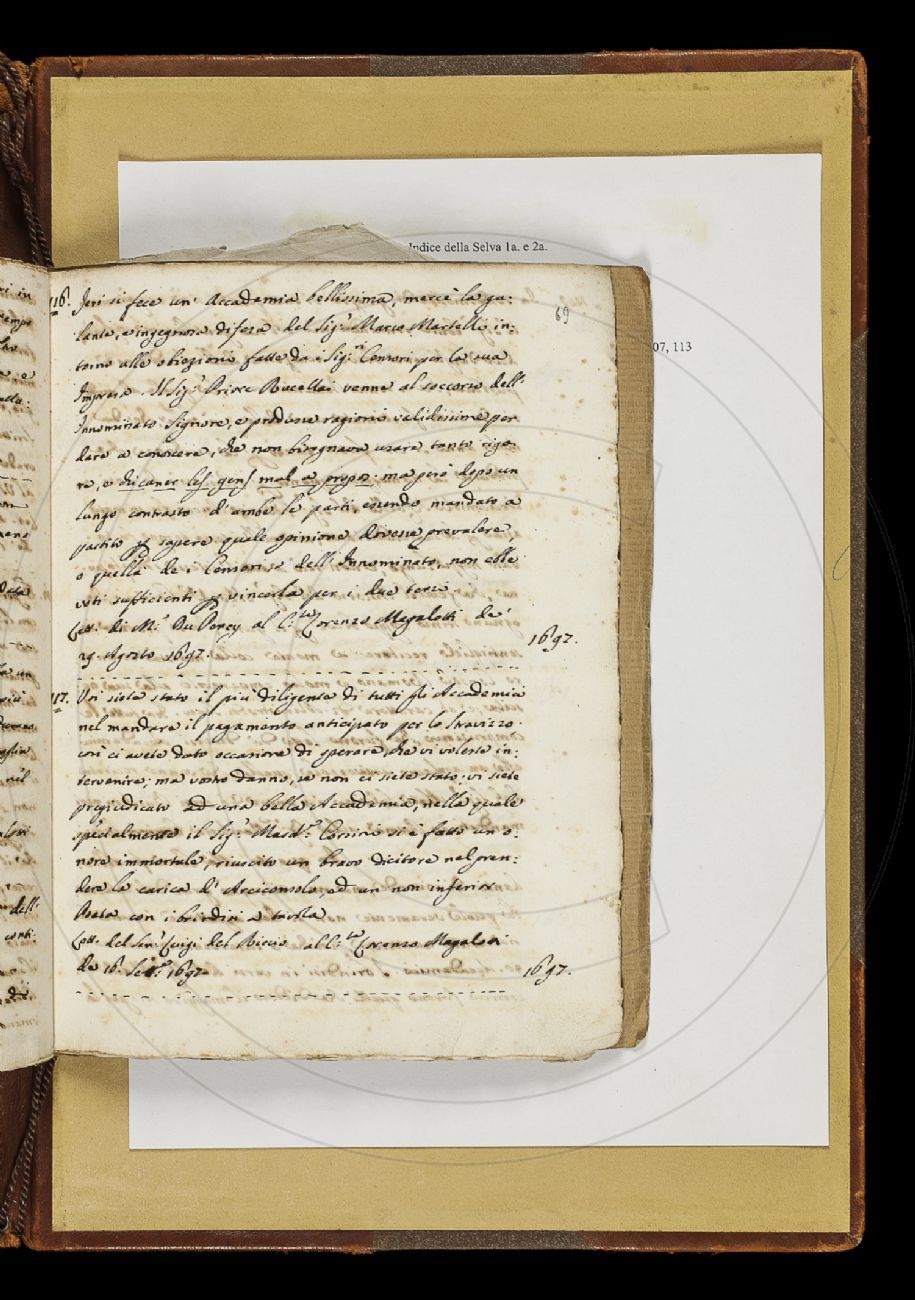 Indice della Selva 1a. e 2a.
07, 113
69
116. Jeri si fece un' Accademia bellissima, mercè la ga:
lante, e ingegnosa difesa del Sig.r Marco Martelli in:
torno alle obiezioni fatte da i Sig.ri Censori per la sua
Impresa. Il Sig.r Priore Rucellai venne al soccorso dell'
Innominato Signore, e produsse ragioni validissime per
dare a conoscere, che non bisognava usare tanto rigo:
re, e chicaner les gens mal a propos: ma però dopo un
lungo contrasto d' ambe le parti, essendo mandato a
partito p sapere quale opinione dovesse prevalere,
o quella de i Censori, o dell' Innominato, non ebbe
voti sufficienti p vincerla per i due terzi
Lett. di M.r Du Percy al C.te Lorenzo Magalotti de'
29. Agosto 1697.
1697.
117. Voi siete stato il più diligente di tutti gli Accademici
nel mandare il pagamento anticipato per lo Stravizzo.
così ci avete dato occasione di sperare, che vi voleste in:
tervenire; ma vostro danno, se non ci siete stato: vi siete
pregiudicato ad una bella Accademia, nella quale
specialmente il Sig.r March.e Corsini si è fatto un o:
nore immortale, riuscito un bravo dicitore nel pren:
dere la carica d' Arciconsolo, ed un non inferiore
Poeta con i brindisi a tavola
Lett. del Sen.r Luigi del Riccio al C.te Lorenzo Magalotti
de 16. Sett.e 1697.
1697.